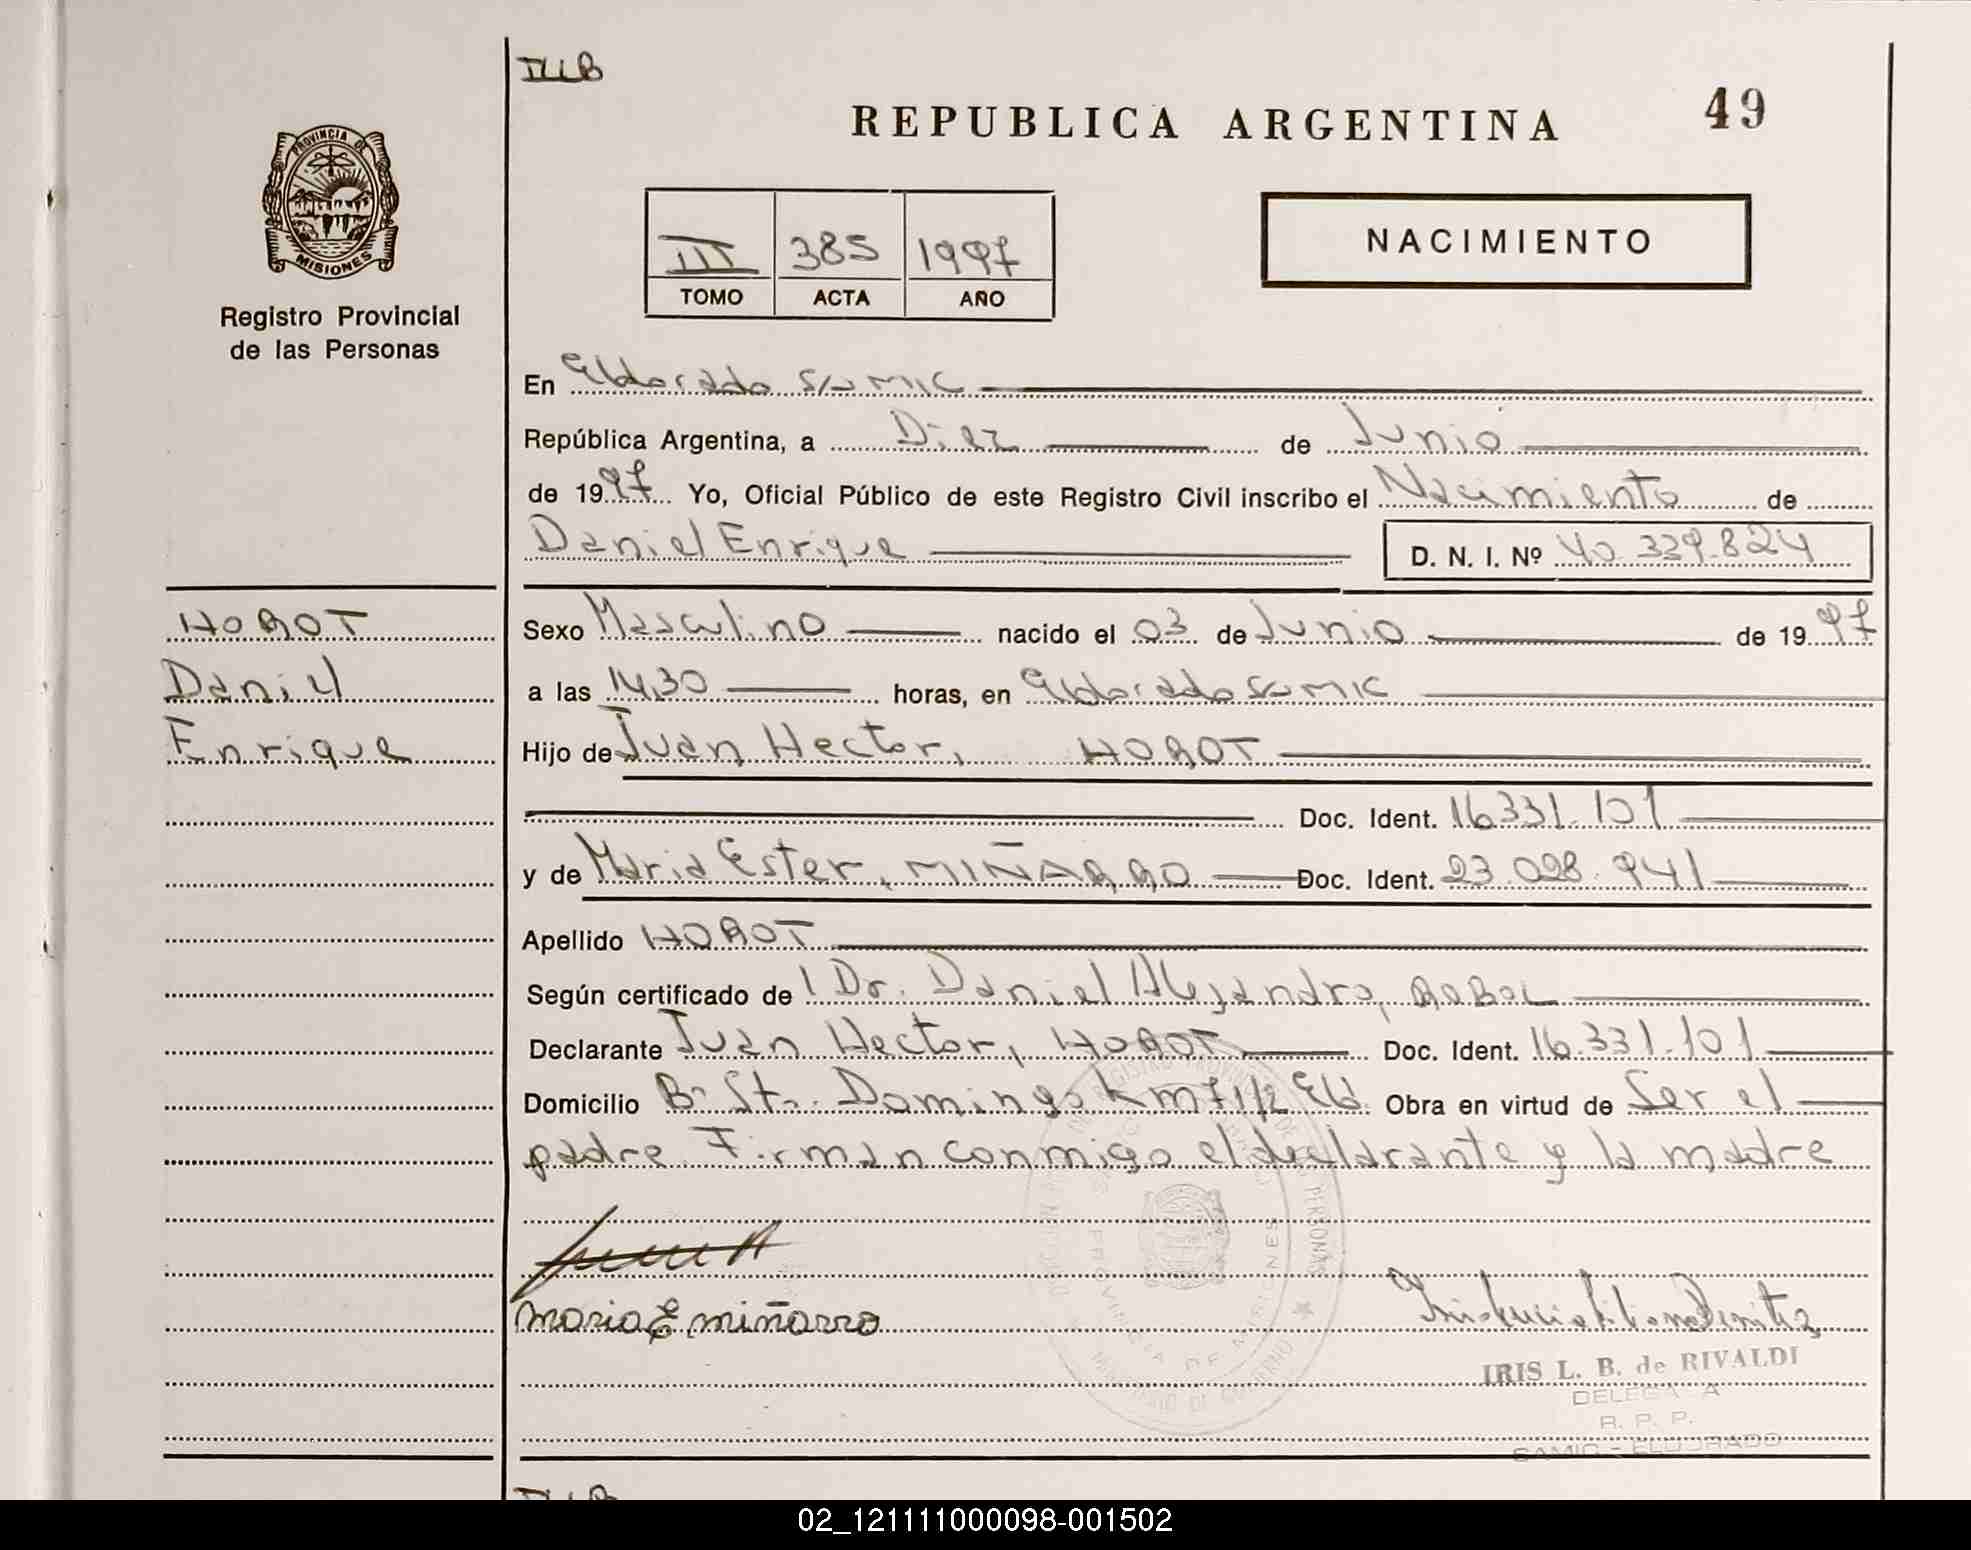 IIIB
REPUBLICA ARGENTINA
49
PROVINCIA DE
MISIONES
Registro Provincial
de las Personas
III 385 1997
TOMO ACTA AÑO
NACIMIENTO
En Eldorado SAMIC
República Argentina, a Diez de Junio
de 1997 Yo, Oficial Público de este Registro Civil inscribo el Nacimiento de
Daniel Enrique D. N. I. Nº 40.339.824
HOROT
Daniel
Enrique
Sexo Masculino nacido el 03 de Junio de 1997
a las 14,30 horas, en Eldorado SAMIC
Hijo de Juan Hector, HOROT
Doc. Ident. 16.331.101
y de Maria Ester, MIÑARRO Doc. Ident. 23.028.941
Apellido HOROT
Según certificado de l Dr. Daniel Alejandro, ROBOL
Declarante Juan Hector, HOROT Doc. Ident. 16.331.101
Domicilio Bº Sto. Domingo Km 7 1/2 Eld. Obra en virtud de Ser el
padre Firman conmigo el declarante y la madre
Maria E miñarro
IRIS L. B. de RIVALDI
DELEGADA
R. P. P.
SAMIC - ELDORADO
02_121111000098-001502